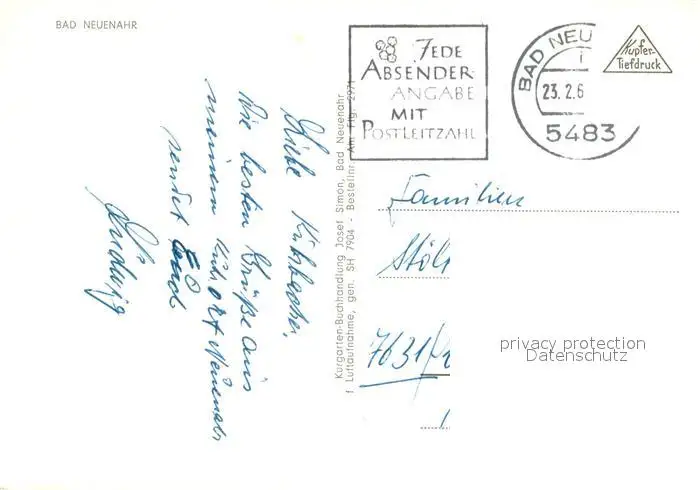 BAD NEUENAHR
JEDE
ABSENDER-
ANGABE
MIT
POSTLEITZAHL
BAD NEU
23.2.6
5483
Kupfer-
Tiefdruck
Liebe
die besten Grüße aus
meinem Kurort Neuenahr
sendet Euch
Ludwig
Kurgarten-Buchhandlung Josef Simon, Bad Neuenahr
Luftaufnahme, gen. SH 7904 - Bestellnr. Am. Flg. 2971
Familien
7631
privacy protection
Datenschutz